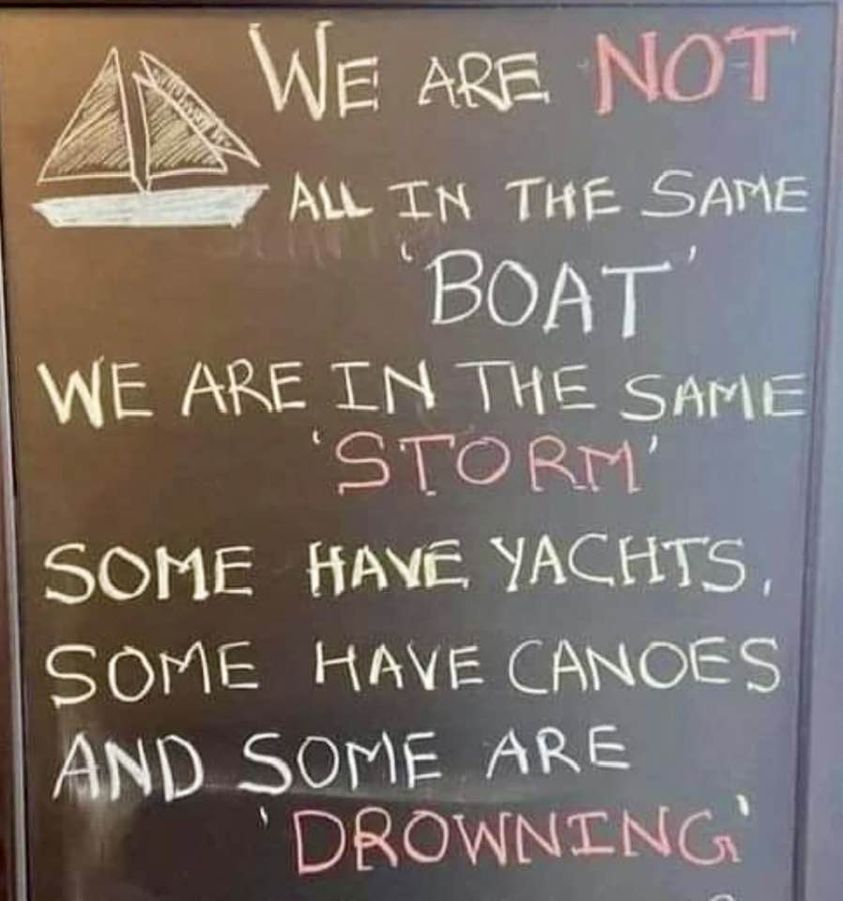 WE ARE NOT
ALL IN THE SAME
'BOAT'
WE ARE IN THE SAME
'STORM'
SOME HAVE YACHTS,
SOME HAVE CANOES
AND SOME ARE
'DROWNING'